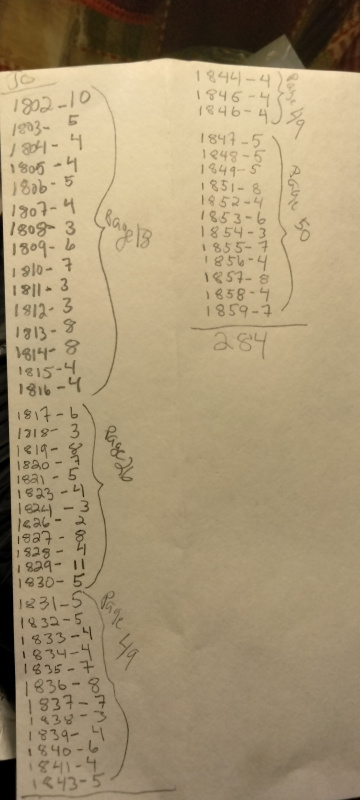 50
1802-10
1803- 5
1804- 4
1805-4
1806-5
1807-4
1808-3
1809-6
1810-7
1811-3
1812-3
1813-8
1814-8
1815-4
1816-4
Page 18
1817-6
1818- 3
1819-8
1820-7
1821-5
1823-4
1824-3
1826-2
1827-8
1828-4
1829-11
1830-5
Page 26
1831-5
1832-5
1833-4
1834-4
1835-7
1836-8
1837-7
1838-3
1839-4
1840-6
1841-4
1843-5
Page 49
1844-4
1845-4
1846-4
Page 49
1847-5
1848-5
1849-5
1851-8
1852-4
1853-6
1854-3
1855-7
1856-4
1857-8
1858-4
1859-7
Page 50
284